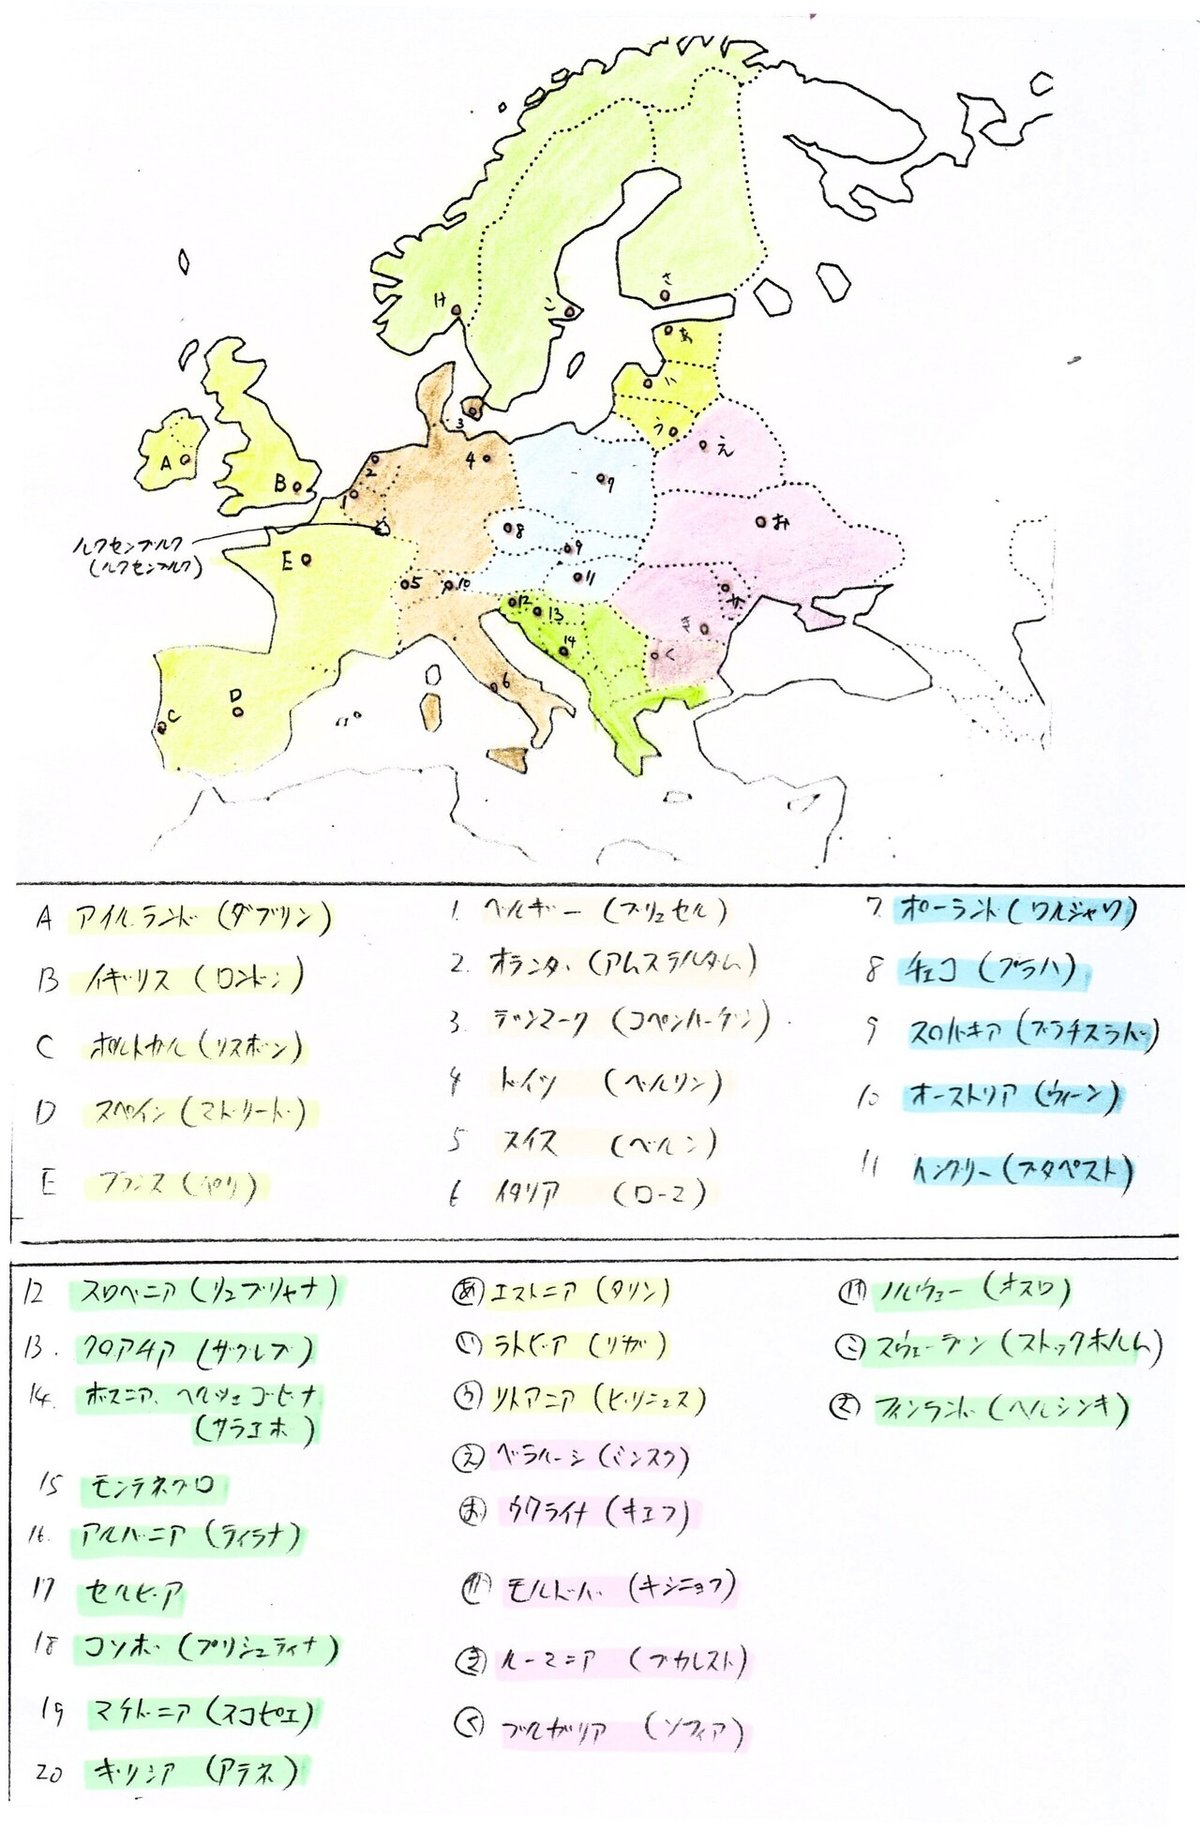 け
こ
さ
あ
い
う
え
お
A
B
1
2
3
4
7
8
9
ルクセンブルク
(ルクセンブルク)
E
5
10
11
12
13
14
か
き
く
6
C
D
A アイルランド (ダブリン)
B イギリス (ロンドン)
C ポルトガル (リスボン)
D スペイン (マドリード)
E フランス (パリ)
1. ベルギー (ブリュセル)
2. オランダ (アムステルダム)
3. デンマーク (コペンハーゲン)
4 ドイツ (ベルリン)
5 スイス (ベルン)
6 イタリア (ローマ)
7. ポーランド (ワルシャワ)
8 チェコ (プラハ)
9 スロバキア (ブラチスラバ)
10 オーストリア (ウィーン)
11 ハンガリー (ブダペスト)
12 スロベニア (リュブリャナ)
13. クロアチア (ザグレブ)
14. ボスニア、ヘルツェゴビナ
(サラエボ)
15 モンテネグロ
16. アルバニア (ティラナ)
17 セルビア
18 コソボ (プリシュティナ)
19 マケドニア (スコピエ)
20 ギリシア (アテネ)
あ エストニア (タリン)
い ラトビア (リガ)
う リトアニア (ビリニュス)
え ベラルーシ (ミンスク)
お ウクライナ (キエフ)
か モルドバ (キシニョフ)
き ルーマニア (ブカレスト)
く ブルガリア (ソフィア)
け ノルウェー (オスロ)
こ スウェーデン (ストックホルム)
さ フィンランド (ヘルシンキ)